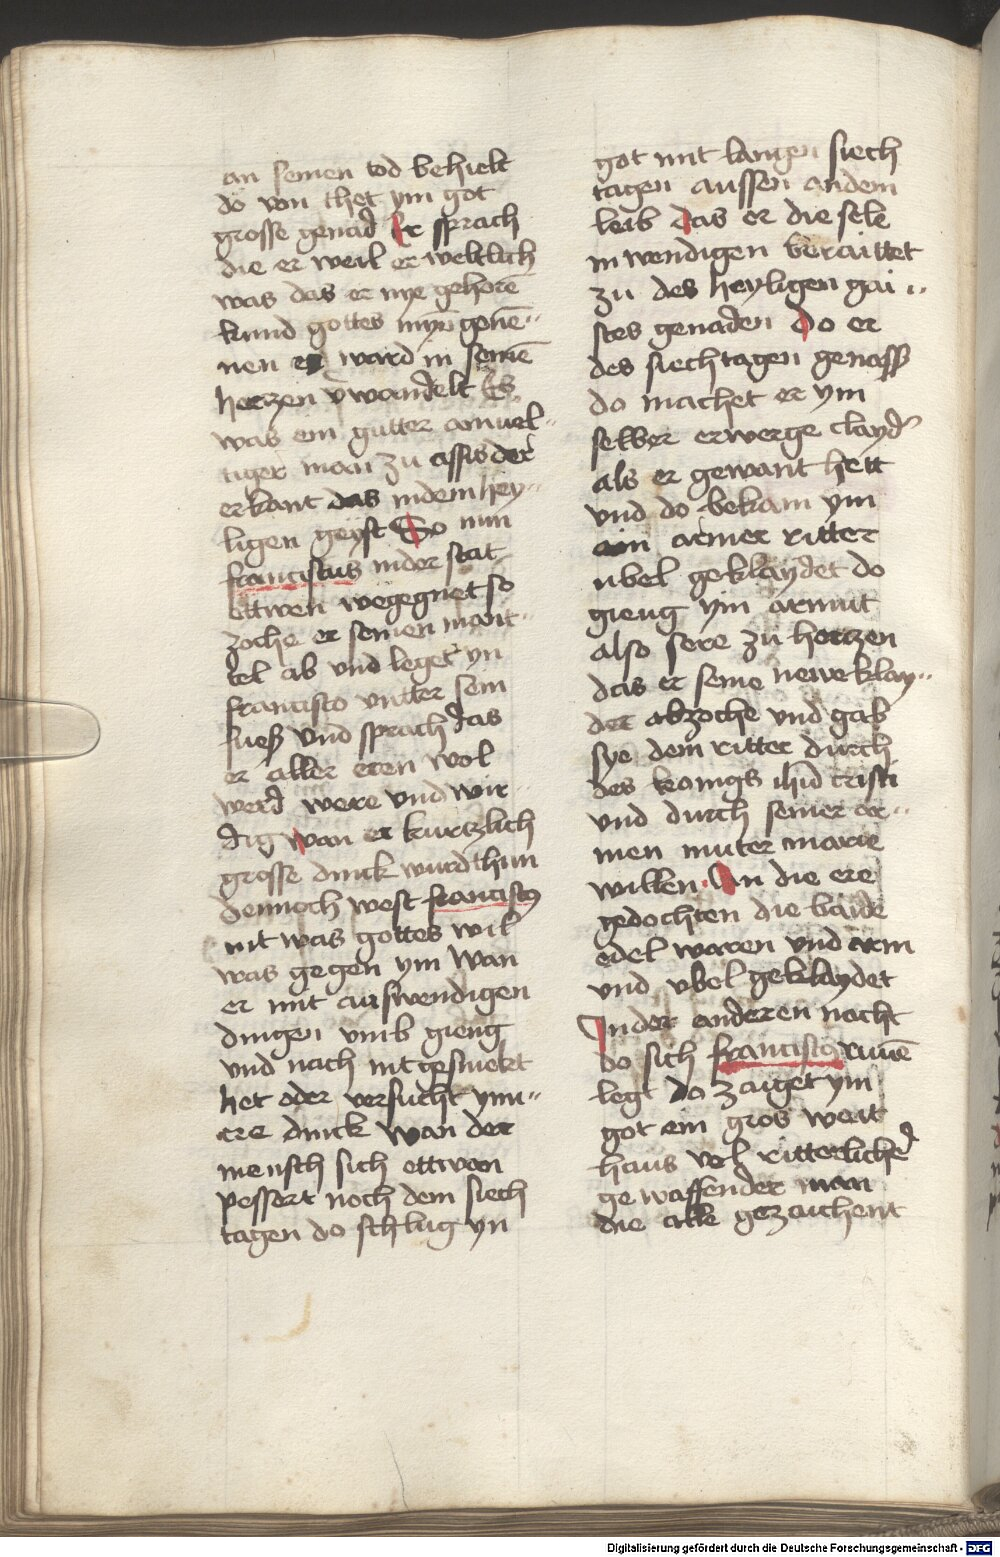 an seinen tod behielt
do von thet ym got
grosse genad Er sprach
die er weil er weltlich
was das er nye gehorē
kund gottes myn̄ genē
nen er ward in seinē
hertzen v̄wandelt Es
was ein gutter ainuel
tiger man zu assis der
erkant das indem hey
ligen geyst So nun
franciscus inder stat
ettwen wegegnet so
zoche er seinen mant
tel ab vnd leget yn
francisco vntter sein
fueß vnd sprach das
er aller eren wol
werd were vnd wir
dig wan er kurtzlich
grosse dinck wurd thun
dennoch west franciscꝰ
nit was gottes wil
was gegen ym wan
er mit auswendigen
dingen vmb gieng
vnd nach nit gesmekt
het oder versucht ynn
ere dinck wan der
mensch sich ettwan
pessert noch dem siech
tagen do schlug yn
got mit langen siech
tagen aussen andem
leib das er die sele
inwendigen beraittet
zu des heyligen gai
stes genaden Do er
des siechtagen genasß
do machet er ym
selber erwerge clayd
als er gewant hett
vnd do bekam ym
ain armer ritter
ubel geklaydet do
gieng ym armut
also sere zu hertzen
das er seine newe klay
der abzoche vnd gab
sye dem ritter durch
des konigs ihū cristi
vnd durch seiner ar
men muter marie
willen An die ere
gedochten die baide
edel waren vnd arm
vnd vbel geklaydet
Inder anderen nacht
do sich franciscꝰ ruuē
legt do zaiget ym
got ein gros weit
haus vol ritterlicher
gewaffender man
die alle gezaichent
Digitalisierung gefördert durch die Deutsche Forschungsgemeinschaft - DFG